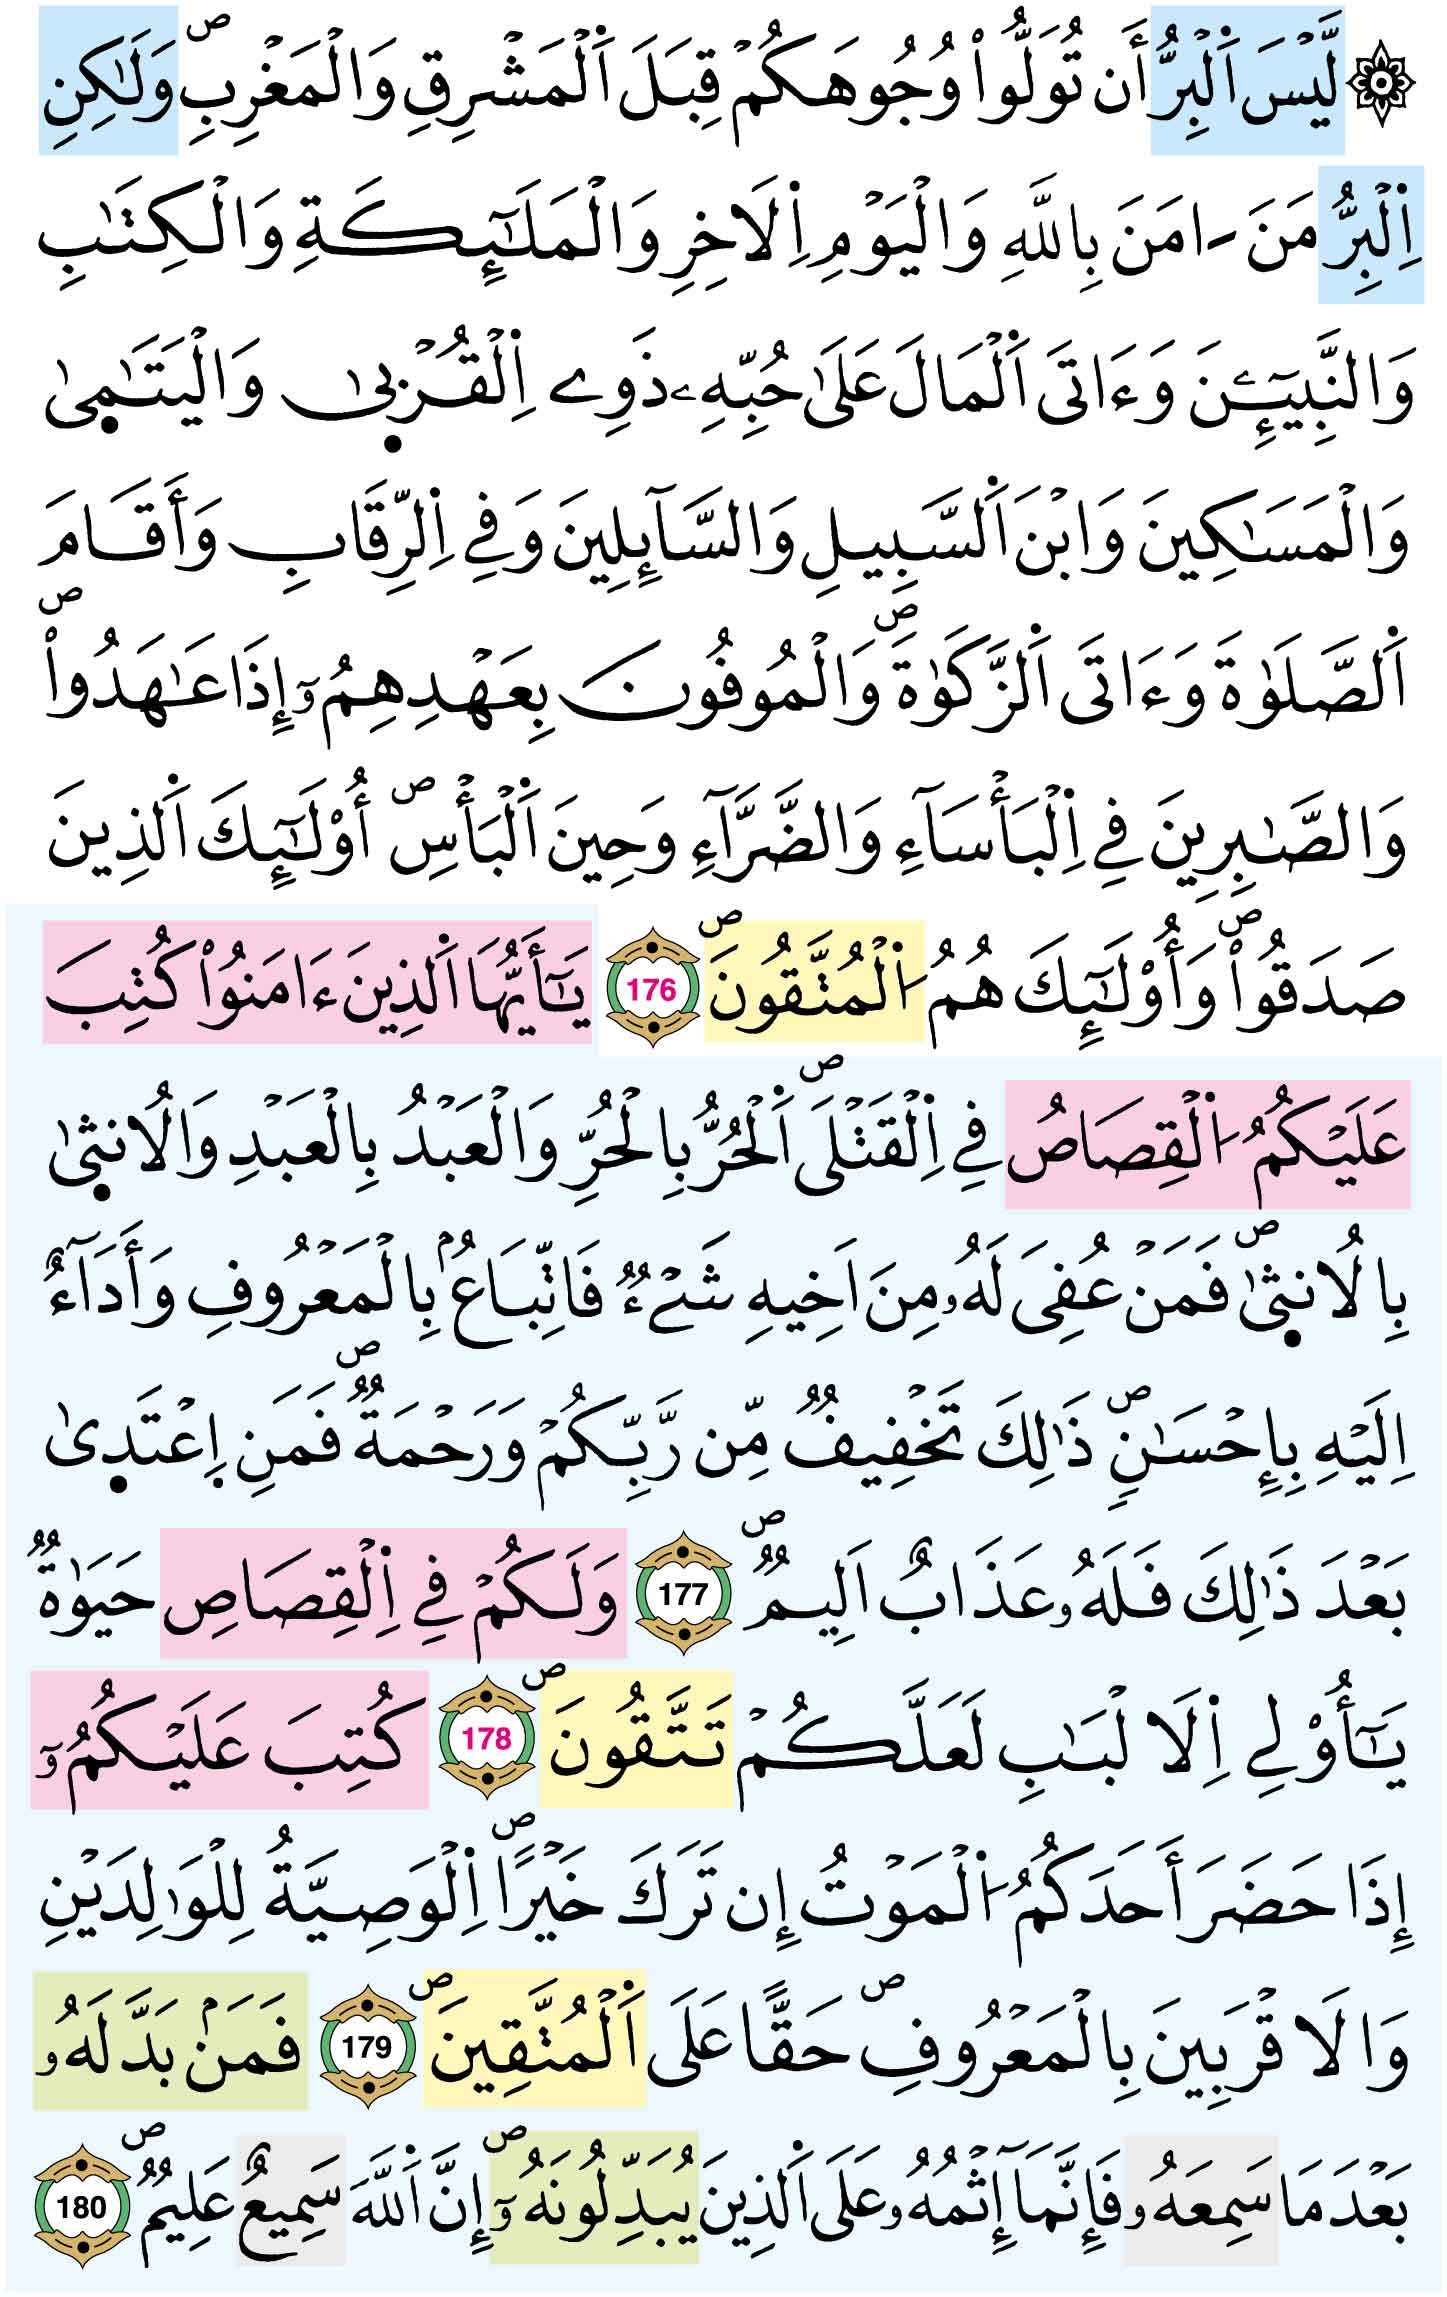 ۞ لَّيْسَ اَ۬لْبِرُّ أَن تُوَلُّواْ وُجُوهَكُمْ قِبَلَ اَ۬لْمَشْرِقِ وَالْمَغْرِبِۖ وَلَٰكِنِ
اِ۬لْبِرُّ مَنَ ـ اٰمَنَ بِاللَّهِ وَالْيَوْمِ اِ۬لَاخِرِ وَالْمَلَٰٓئِكَةِ وَالْكِتَٰبِ
وَالنَّبِيٓـِٕۧنَ وَءَاتَى اَ۬لْمَالَ عَلَىٰ حُبِّهِۦ ذَوِے اِ۬لْقُرْب۪ىٰ وَالْيَتَٰم۪ىٰ
وَالْمَسَٰكِينَ وَابْنَ اَ۬لسَّبِيلِ وَالسَّآئِلِينَ وَفِي اِ۬لرِّقَابِ وَأَقَامَ
اَ۬لصَّلَوٰةَ وَءَاتَى اَ۬لزَّكَوٰةَۖ وَالْمُوفُونَ بِعَهْدِهِمُۥٓ إِذَا عَٰهَدُواْۖ
وَالصَّٰبِرِينَ فِي اِ۬لْبَأْسَآءِ وَالضَّرَّآءِ وَحِينَ اَ۬لْبَأْسِۖ أُوْلَٰٓئِكَ اَ۬لذِينَ
صَدَقُواْۖ وَأُوْلَٰٓئِكَ هُمُ اُ۬لْمُتَّقُونَۖ 176 يَٰٓأَيُّهَا اَ۬لذِينَ ءَامَنُواْ كُتِبَ
عَلَيْكُمُ اُ۬لْقِصَاصُ فِي اِ۬لْقَتْلَىۖ اَ۬لْحُرُّ بِالْحُرِّ وَالْعَبْدُ بِالْعَبْدِ وَالُانث۪ىٰ
بِالُانث۪ىٰۖ فَمَنْ عُفِىَ لَهُۥ مِنَ اَخِيهِ شَےْءٞ فَاتِّبَاعُۢ بِالْمَعْرُوفِ وَأَدَآءٌ
اِلَيْهِ بِإِحْسَٰنٖۖ ذَٰلِكَ تَخْفِيفٞ مِّن رَّبِّكُمْ وَرَحْمَةٞۖ فَمَنِ اِ۪عْتَد۪ىٰ
بَعْدَ ذَٰلِكَ فَلَهُۥ عَذَابٌ اَلِيمٞۖ 177 وَلَكُمْ فِي اِ۬لْقِصَاصِ حَيَوٰةٞ
يَٰٓأُوْلِي اِ۬لَالْبَٰبِ لَعَلَّكُمْ تَتَّقُونَۖ 178 كُتِبَ عَلَيْكُمُۥٓ
إِذَا حَضَرَ أَحَدَكُمُ اُ۬لْمَوْتُ إِن تَرَكَ خَيْراًۖ اِ۬لْوَصِيَّةُ لِلْوَٰلِدَيْنِ
وَالَاقْرَبِينَ بِالْمَعْرُوفِۖ حَقّاً عَلَى اَ۬لْمُتَّقِينَۖ 179 فَمَنۢ بَدَّلَهُۥ
بَعْدَمَا سَمِعَهُۥ فَإِنَّمَآ إِثْمُهُۥ عَلَى اَ۬لذِينَ يُبَدِّلُونَهُۥٓۖ إِنَّ اَ۬للَّهَ سَمِيعٌ عَلِيمٞۖ 180